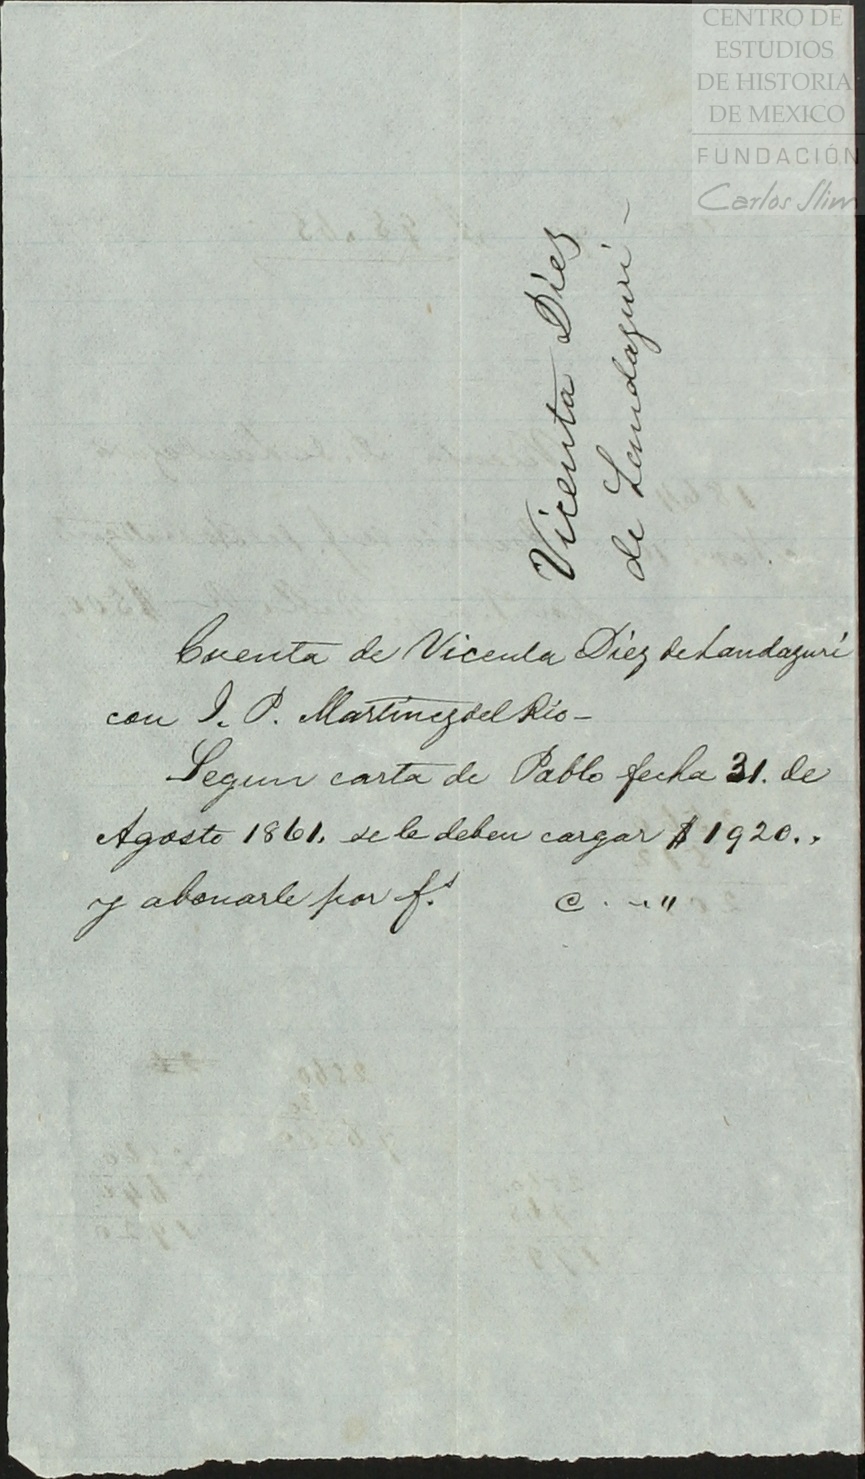 CENTRO DE
ESTUDIOS
DE HISTORIA
DE MEXICO
FUNDACIÓN
Carlos Slim
Vicenta Díez
de Landazuri -
Cuenta de Vicenta Díez de Landazuri
con J. P. Martínez del Río -
Segun carta de Pablo fecha 31. de
Agosto 1861. se le deben cargar $ 1920.,
y abonarle por f.s